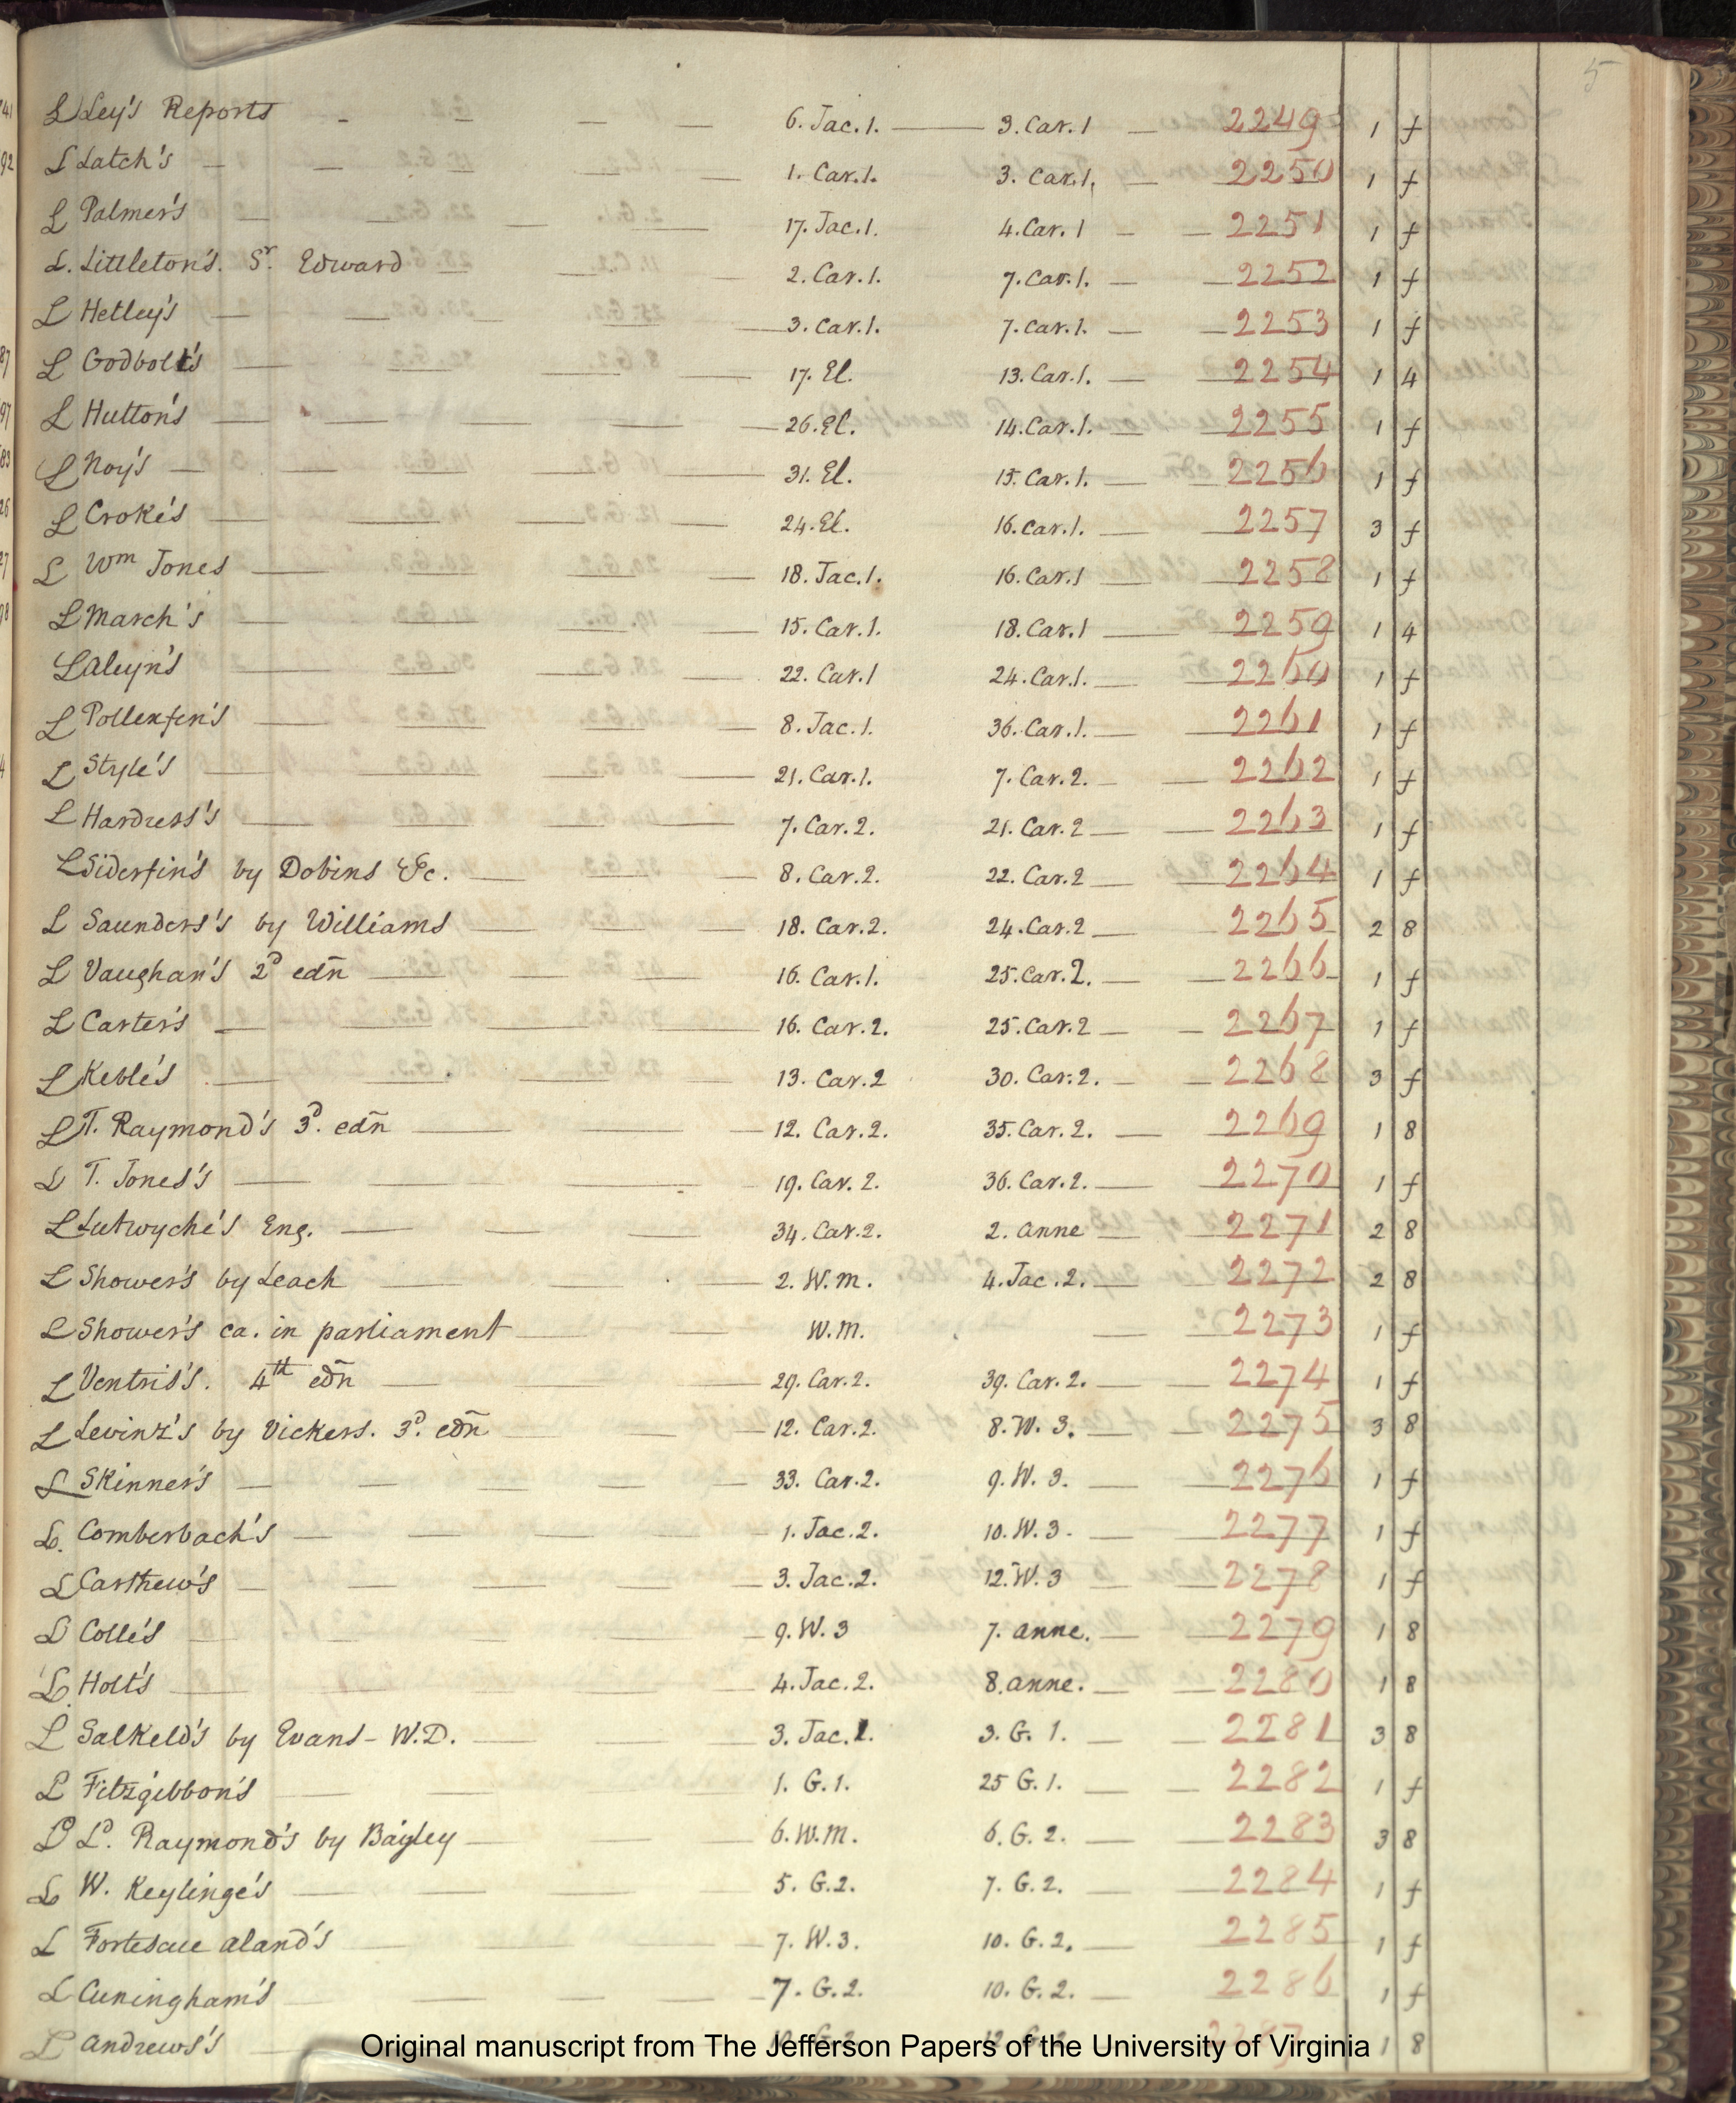 5
L Ley's Reports - 6. Jac. 1. — 3. Car. 1 — 2249 1 f
L Latch's — 1. Car. 1. 3. Car. 1. — 2250 1 f
L Palmer's — 17. Jac. 1. 4. Car. 1 — 2251 1 f
L. Littleton's. Sr. Edward — 2. Car. 1. 7. Car. 1. — 2252 1 f
L Hetley's — 3. Car. 1. 7. Car. 1. — 2253 1 f
L Godbolt's — 17. El. 13. Car. 1. — 2254 1 4
L Hutton's — 26. El. 14. Car. 1. — 2255 1 f
L Noy's — 31. El. 15. Car. 1. — 2256 1 f
L Croke's — 24. El. 16. Car. 1. — 2257 3 f
L Wm Jones — 18. Jac. 1. 16. Car. 1 — 2258 1 f
L March's — 15. Car. 1. 18. Car. 1 — 2259 1 4
L Aleyn's — 22. Car. 1 24. Car. 1. — 2260 1 f
L Pollexfen's — 8. Jac. 1. 36. Car. 1. — 2261 1 f
L Style's — 21. Car. 1. 7. Car. 2. — 2262 1 f
L Hardress's — 7. Car. 2. 21. Car. 2 — 2263 1 f
L Siderfin's by Dobins &c. — 8. Car. 2. 22. Car. 2 — 2264 1 f
L Saunders's by Williams — 18. Car. 2. 24. Car. 2 — 2265 2 8
L Vaughan's 2d edn — 16. Car. 1. 25. Car. 2. — 2266 1 f
L Carter's — 16. Car. 2. 25. Car. 2 — 2267 1 f
L Keble's — 13. Car. 2 30. Car. 2. — 2268 3 f
L T. Raymond's 3d. edn — 12. Car. 2. 35. Car. 2. — 2269 1 8
L T. Jones's — 19. Car. 2. 36. Car. 2. — 2270 1 f
L Lutwyche's Eng. — 34. Car. 2. 2. Anne — 2271 2 8
L Shower's by Leach — 2. W.M. 4. Jac. 2. — 2272 2 8
L Shower's ca. in parliament — W.M. — 2273 1 f
L Ventris's. 4th edn — 29. Car. 2. 39. Car. 2. — 2274 1 f
L Levinz's by Vickers. 3d. edn — 12. Car. 2. 8. W. 3. — 2275 3 8
L Skinner's — 33. Car. 2. 9. W. 3. — 2276 1 f
L. Comberbach's — 1. Jac. 2. 10. W. 3. — 2277 1 f
L Carthew's — 3. Jac. 2. 12. W. 3 — 2278 1 f
L Colle's — 9. W. 3 7. Anne. — 2279 1 8
L. Holt's — 4. Jac. 2. 8. Anne. — 2280 1 8
L Salkeld's by Evans - W.D. — 3. Jac. 1. 3. G. 1. — 2281 3 8
L Fitzgibbon's — 1. G. 1. 25 G. 1. — 2282 1 f
L Ld. Raymond's by Bayley — 6. W.M. 6. G. 2. — 2283 3 8
L W. Keylinge's — 5. G. 2. 7. G. 2. — 2284 1 f
L Fortescue Aland's — 7. W. 3. 10. G. 2. — 2285 1 f
L Cuningham's — 7. G. 2. 10. G. 2. — 2286 1 f
L Andrews's — 1 8
Original manuscript from The Jefferson Papers of the University of Virginia